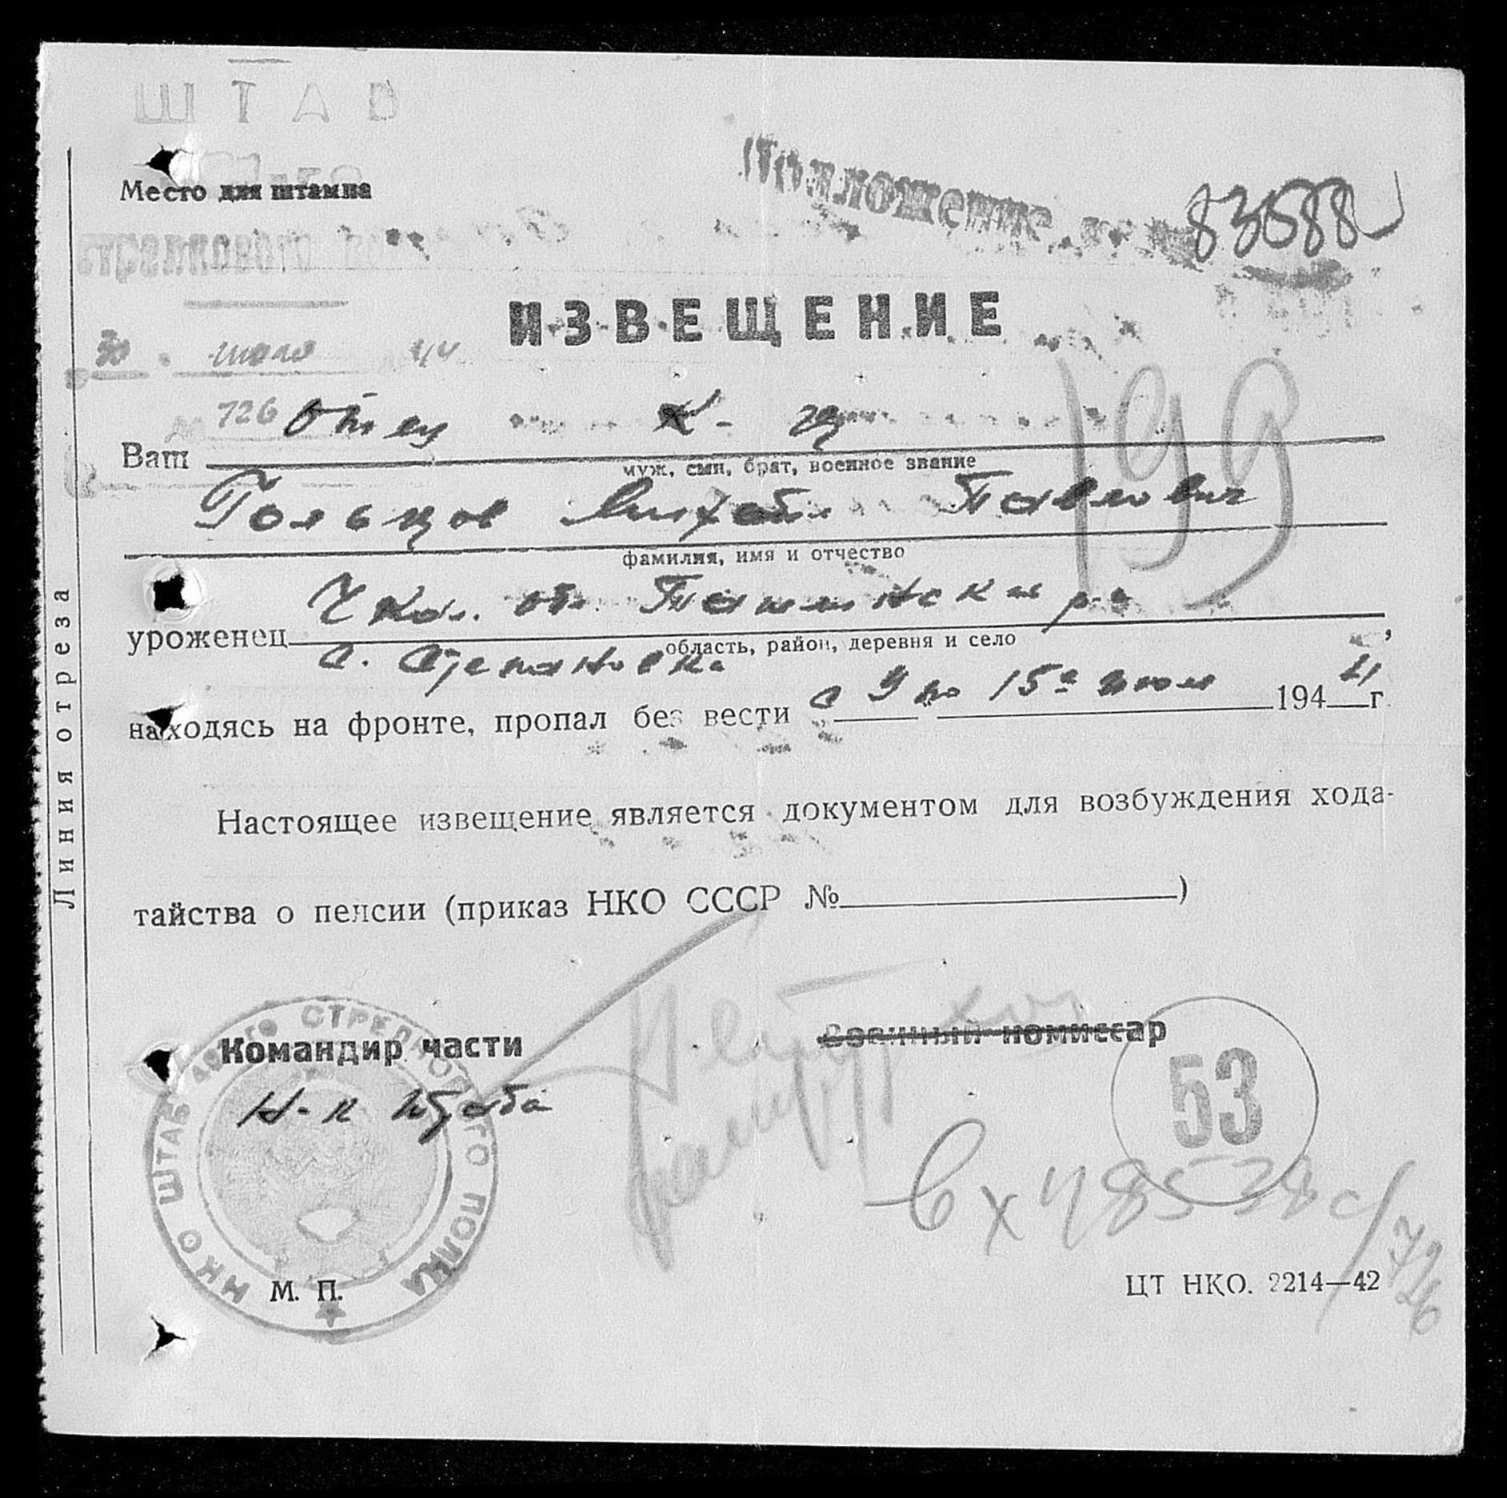 ШТАБ
Место для штампа
стрелкового
83688
ИЗВЕЩЕНИЕ
30 июля 44
726
Ваш отец к-ц
муж, сын, брат, военное звание
Гольцов Михаил Павлович
фамилия, имя и отчество
уроженец Чкал. обл.
область, район, деревня и село
с. Степановка
находясь на фронте, пропал без вести с 9 по 15е июля 1944 г.
Настоящее извещение является документом для возбуждения хода-
тайства о пенсии (приказ НКО СССР № )
199
Командир части
Военный комиссар
Н-к Штаба
НКО ШТАБ СТРЕЛКОВОГО ПОЛКА
53
вх 48538с/726
М. П.
ЦТ НКО. 2214—42
Линия отреза